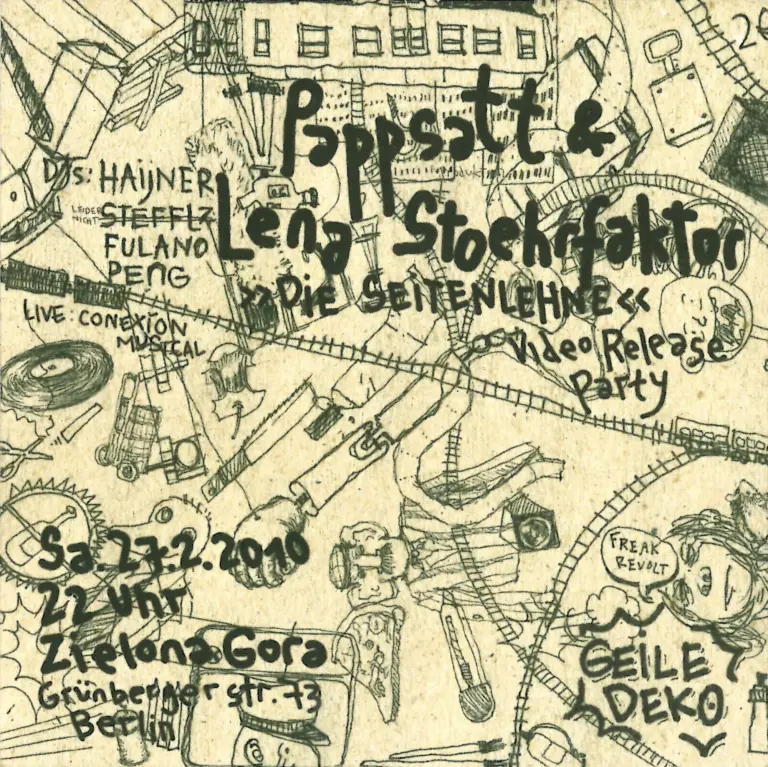 Pappsatt &
Lena Stoehrfaktor
>>DIE SEITENLEHNE<<
Video Release
Party
DJs: HAIJNER
LEIDER NICHT STEFFLZ
FULANO
PENG
LIVE: CONEXION
MUSICAL
FREAK
REVOLT
GEILE
DEKO
Sa. 27.2.2010
22 Uhr
Zielona Gora
Grünberger str. 73
Berlin